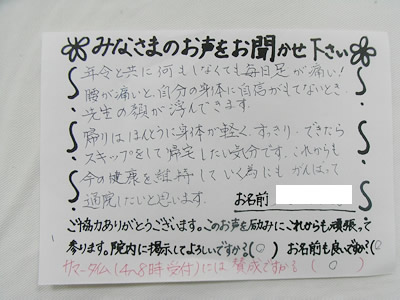 みなさまのお声をお聞かせ下さい
年令と共に何もしなくても毎日足が痛い!
腰が痛いと、自分の身体に自信がもてないとき
先生の顔が浮んできます。
帰りはほんとうに身体が軽く、すっきり、できたら
スキップをして帰宅したい気分です。これからも
今の健康を維持して いく為にも がんばって
通院したいと思います。
お名前
ご協力ありがとうございます。このお声を励みにこれからも頑張って
参ります。院内に掲示してよろしいですか?(○) お名前も良いですか?(○
サマータイム(4月8時受付)には 賛成ですか?(○)